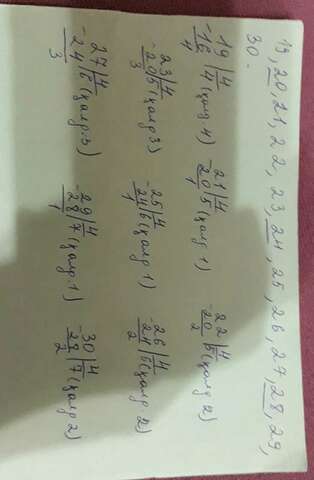 19, 20, 21, 22, 23, 24, 25, 26, 27, 28, 29,
30.
-19|4 -21|4 -22|4
16|4 (қалд 4) 20|5 (қалд 1) 20|5 (қалд 2)
4 1 2
-23|4 -25|4 -26|4
20|5 (қалд 3) 24|6 (қалд 1) 24|6 (қалд 2)
3 1 2
-27|4 -29|4 -30|4
24|6 (қалд. 3) 28|7 (қалд. 1) 28|7 (қалд 2)
3 1 2